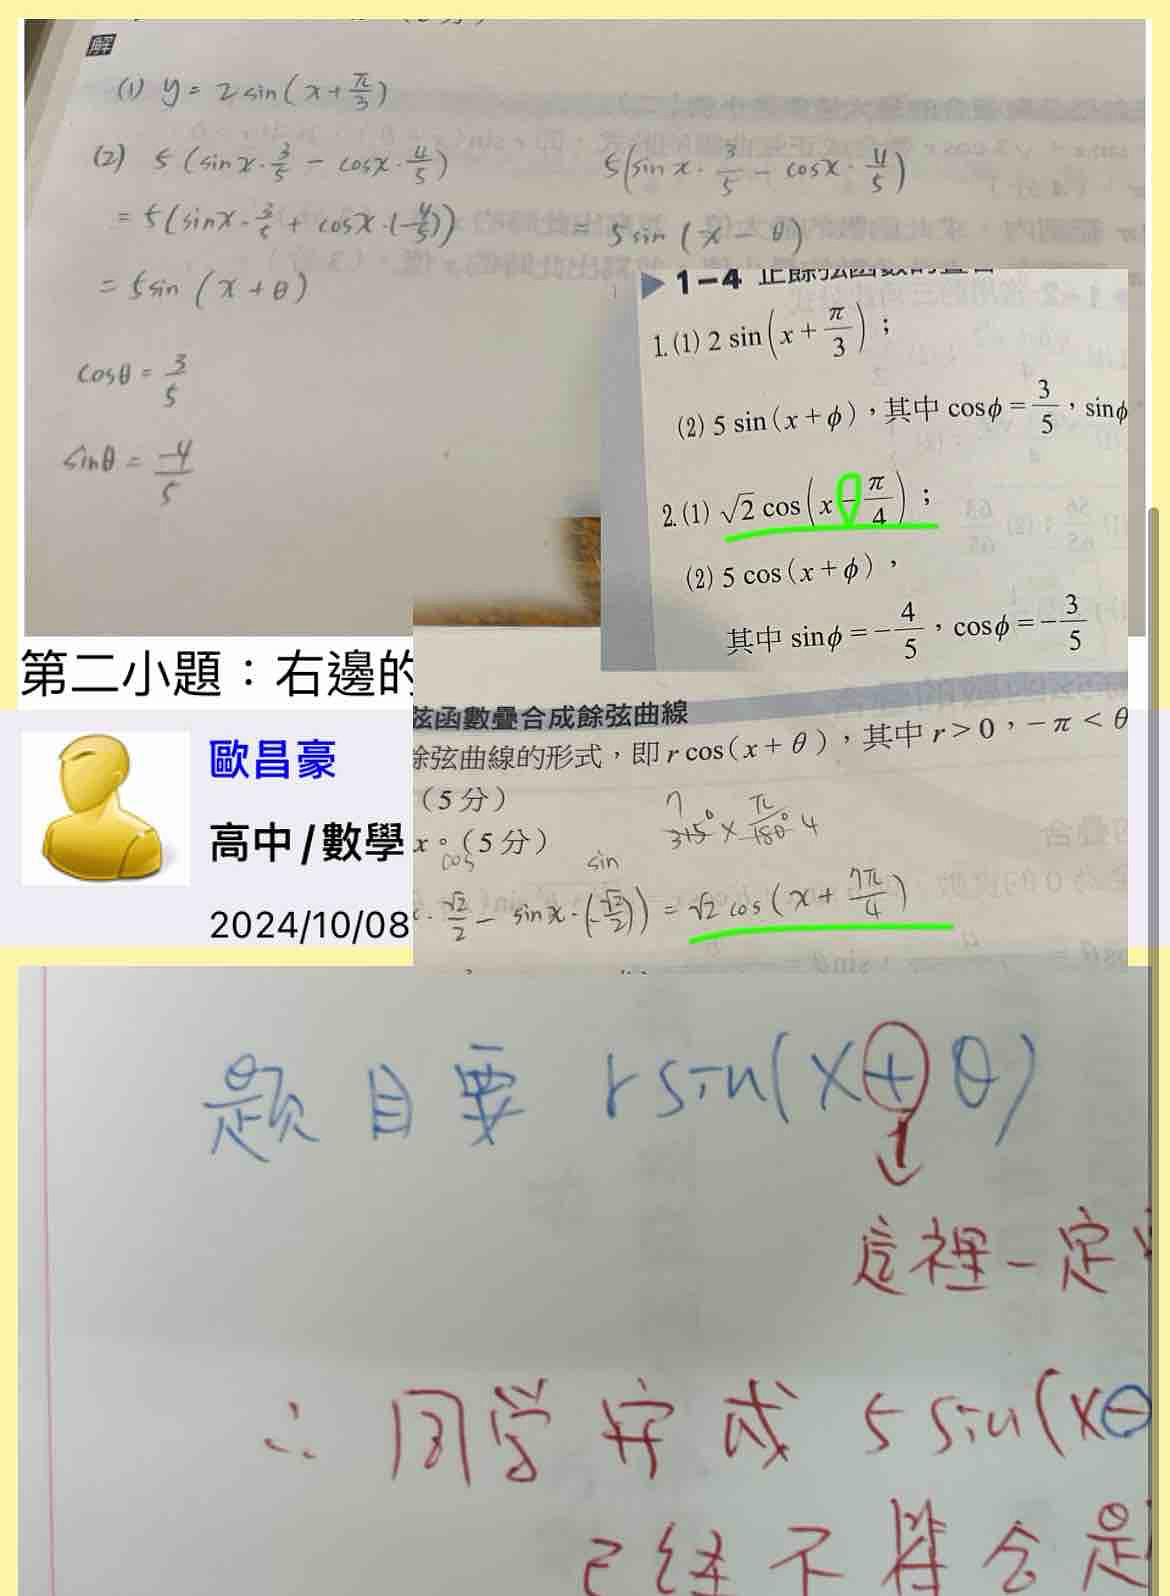 解
(1) y = 2 sin(x + π/3)
(2) 5 (sin x · 3/5 − cos x · 4/5)
= 5(sin x · 3/5 + cos x · (−4/5))
= 5 sin (x + θ)
cosθ = 3/5
sinθ = −4/5
5(sin x · 3/5 − cos x · 4/5)
= 5 sin (x − θ)
▶ 1−4 正餘弦函數的疊合
1. (1) 2 sin(x + π/3) ;
(2) 5 sin(x + ϕ),其中 cosϕ = 3/5,sinϕ
2. (1) √2 cos(x − π/4) ;
(2) 5 cos(x + ϕ),
其中 sinϕ = −4/5,cosϕ = −3/5
第二小題:右邊的
歐昌豪
高中/數學
2024/10/08
弦函數疊合成餘弦曲線
餘弦曲線的形式,即 r cos(x + θ),其中 r > 0,−π < θ
(5 分)
x。(5 分)
7
315° × π/180° 4
cos sin
· √2/2 − sin x · (−√2/2)) = √2 cos (x + 7π/4)
題目要 r sin(x + θ)
這裡一定
∴ 同学寫成 5 sin(x −
已经不符合是